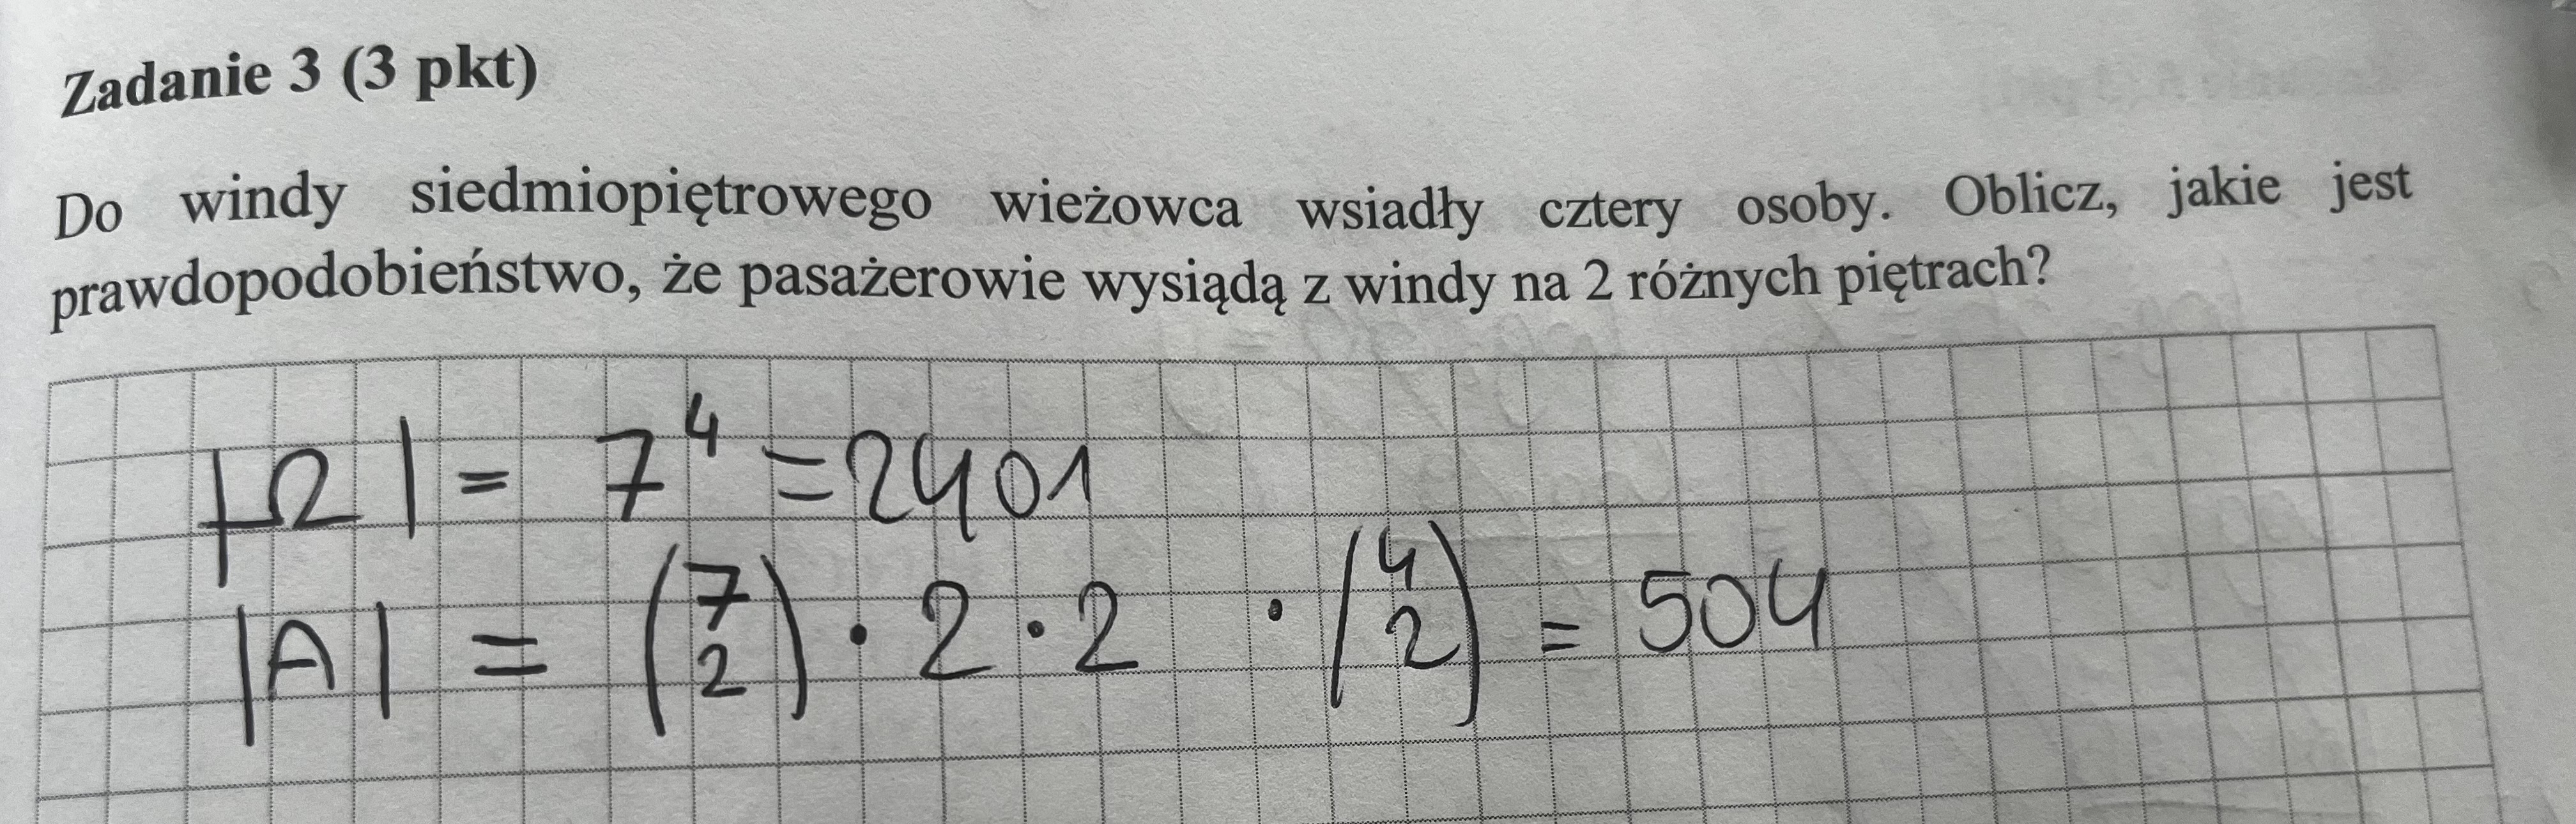 Zadanie 3 (3 pkt)
Do windy siedmiopiętrowego wieżowca wsiadły cztery osoby. Oblicz, jakie jest
prawdopodobieństwo, że pasażerowie wysiądą z windy na 2 różnych piętrach?
|Ω| = 7⁴ = 2401
|A| = (7 2) · 2 · 2 · (4 2) = 504